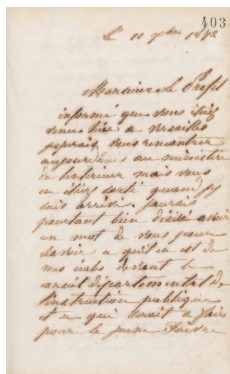 403
Le 11 9bre 1872
Monsieur le Préfet
informé que vous étiez
venu hier à Versailles
j'espérais vous rencontrer
aujourd'hui au ministère
de l'intérieur mais vous
en étiez sorti quand j'y
suis arrivé. J'aurais
pourtant bien désiré avoir
un mot de vous pour
savoir ce qu'il en est de
mes écoles devant le
conseil départemental de
l'instruction publique
et ce qui serait à faire
pour le jeune